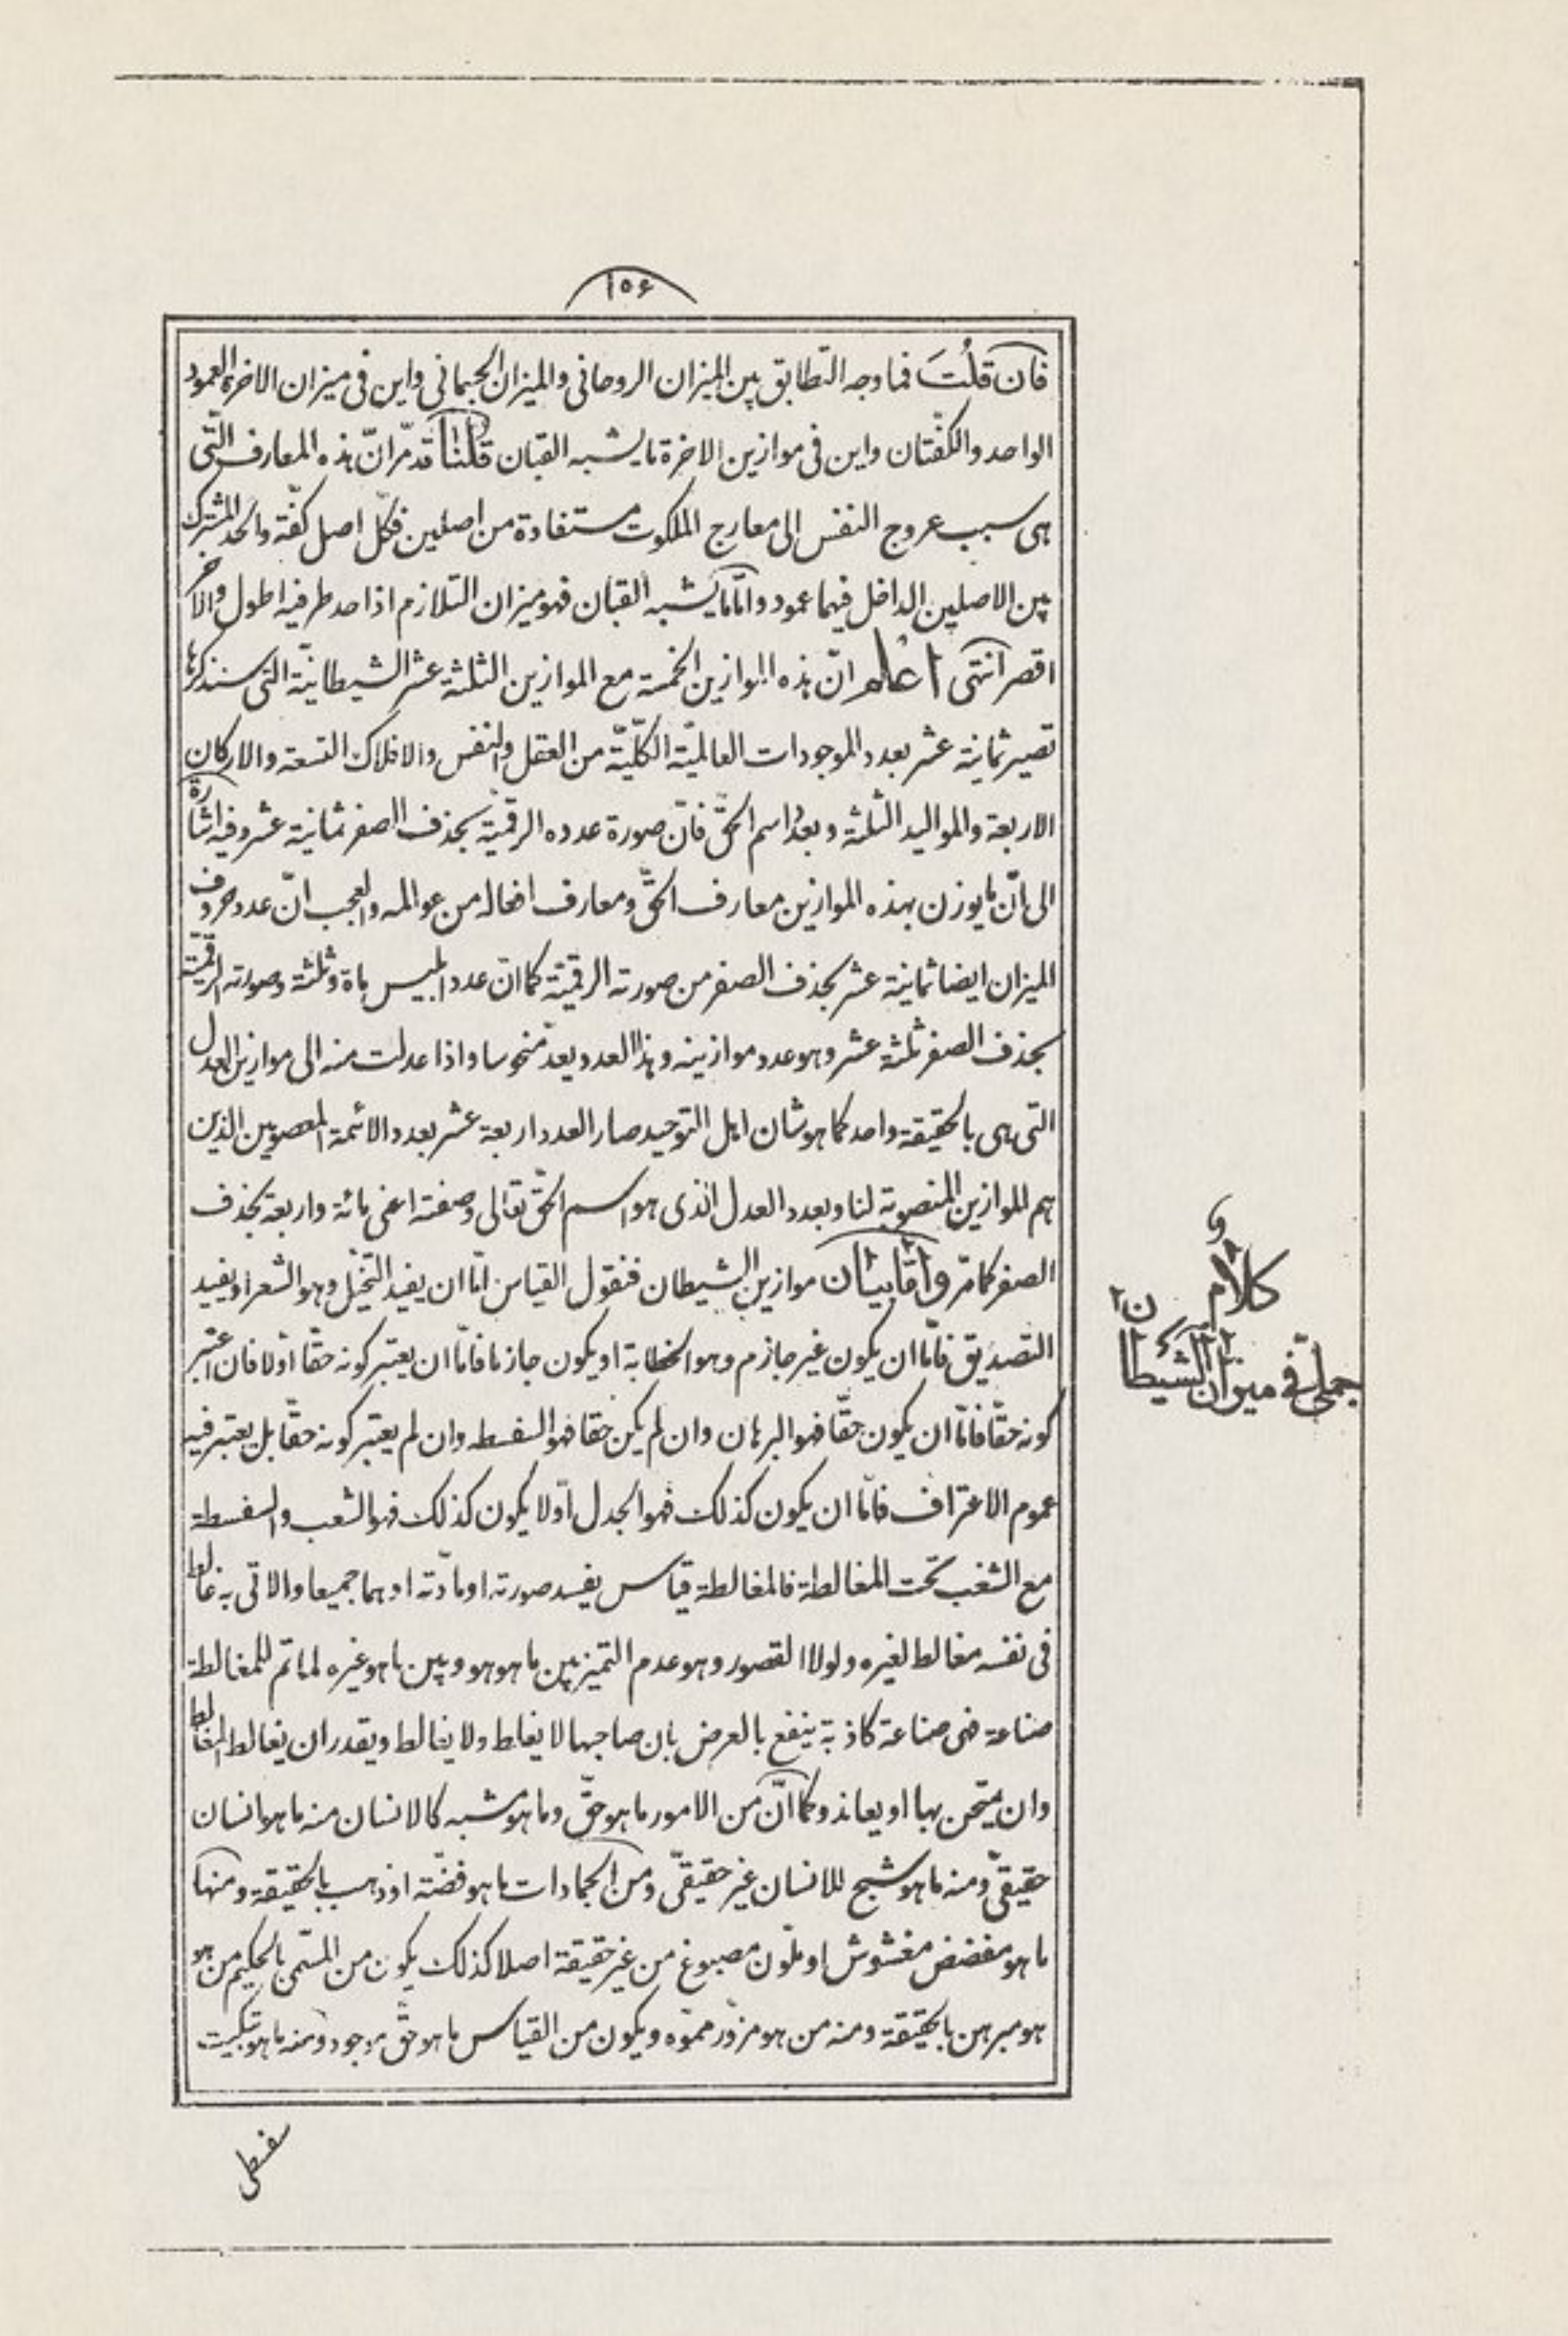 ١٥٦
فان قلت فما وجه التّطابق بين الميزان الروحانى والميزان الجسمانى واين فى ميزان الاخرة العمود
الواحد والكفّتان واين فى موازين الاخرة ما يشبه القبان قلنا قد مرّ انّ هذه المعارف الّتى
هى سبب عروج النفس الى معارج الملكوت مستفادة من اصلين فكلّ اصل كفّة والحد المشترك
بين الاصلين الداخل فيهما عمود وامّا ما يشبه القبان فهو ميزان التلازم اذ احد طرفيه اطول والاخر
اقصر انتهى اعلم انّ هذه الموازين الخمسة مع الموازين الثلثة عشر الشيطانيّة التى سنذكرها
تصير ثمانية عشر بعدد الموجودات العالميّة الكلّيّة من العقل والنفس والافلاك التسعة والاركان
الاربعة والمواليد الثلثة وبعدد اسم الحىّ فانّ صورة عدده الرقميّة بحذف الصفر ثمانية عشر وفيه اشارة
الى انّ ما يوزن بهذه الموازين معارف الحقّ ومعارف افعاله من عوالمه والعجب انّ عدد حروف
الميزان ايضا ثمانية عشر بحذف الصفر من صورته الرقميّة كما انّ عدد ابليس ماة وثلثة وصورته الرقميّة
بحذف الصفر ثلثة عشر وهو عدد موازينه وهذا العدد يعدّ منحوسا واذا عدلت منه الى موازين العدل
التى هى بالحقيقة واحد كما هو شان اهل التوحيد صار العدد اربعة عشر بعدد الائمة المعصومين الذين
هم الموازين المنصوبة لنا وبعدد العدل الّذى هو اسم الحقّ تعالى وصفته اعنى مائة واربعة بحذف
الصفر كما مرّ وامّا بيان موازين الشيطان فنقول القياس امّا ان يفيد التخيّل وهو الشعر او يفيد
التصديق فامّا ان يكون غير جازم وهو الخطابة او يكون جازما فامّا ان يعتبر كونه حقّا أو لا فان اعتبر
كونه حقّا فامّا ان يكون حقّا فهو البرهان وان لم يكن حقا فهو السفسطه وان لم يعتبر كونه حقّا بل يعتبر فيه
عموم الاعتراف فامّا ان يكون كذلك فهو الجدل أو لا يكون كذلك فهو الشغب والسفسطة
مع الشغب تحت المغالطة فالمغالطة قياس يفسد صورته او مادّته او هما جميعا والاتى به غالط
فى نفسه مغالط لغيره ولولا القصور وهو عدم التميز بين ما هو هو وبين ما هو غيره لما تم للمغالطة
صناعة فهى صناعة كاذبة ينفع بالعرض بان صاحبها لا يغلط ولا يغالط ويقدر ان يغالط المغالط
وان يمتحن بها او يعاند وكما انّ من الامور ما هو حقّ وما هو مشبه كالانسان منه ما هو انسان
حقيقىّ ومنه ما هو شبح للانسان غير حقيقىّ ومن الجمادات ما هو فضّة او ذهب بالحقيقة ومنها
ما هو مفضض مغشوش او ملوّن مصبوغ من غير حقيقة اصلا كذلك يكون من المسمّى بالحكيم من هو
هو مبرهن بالحقيقة ومنه من هو مزوّر مموّه ويكون من القياس ما هو حقّ موجود ومنه ما هو تبكيت
سفسطى
و
كلام
جملى فى ميزان الشيطان